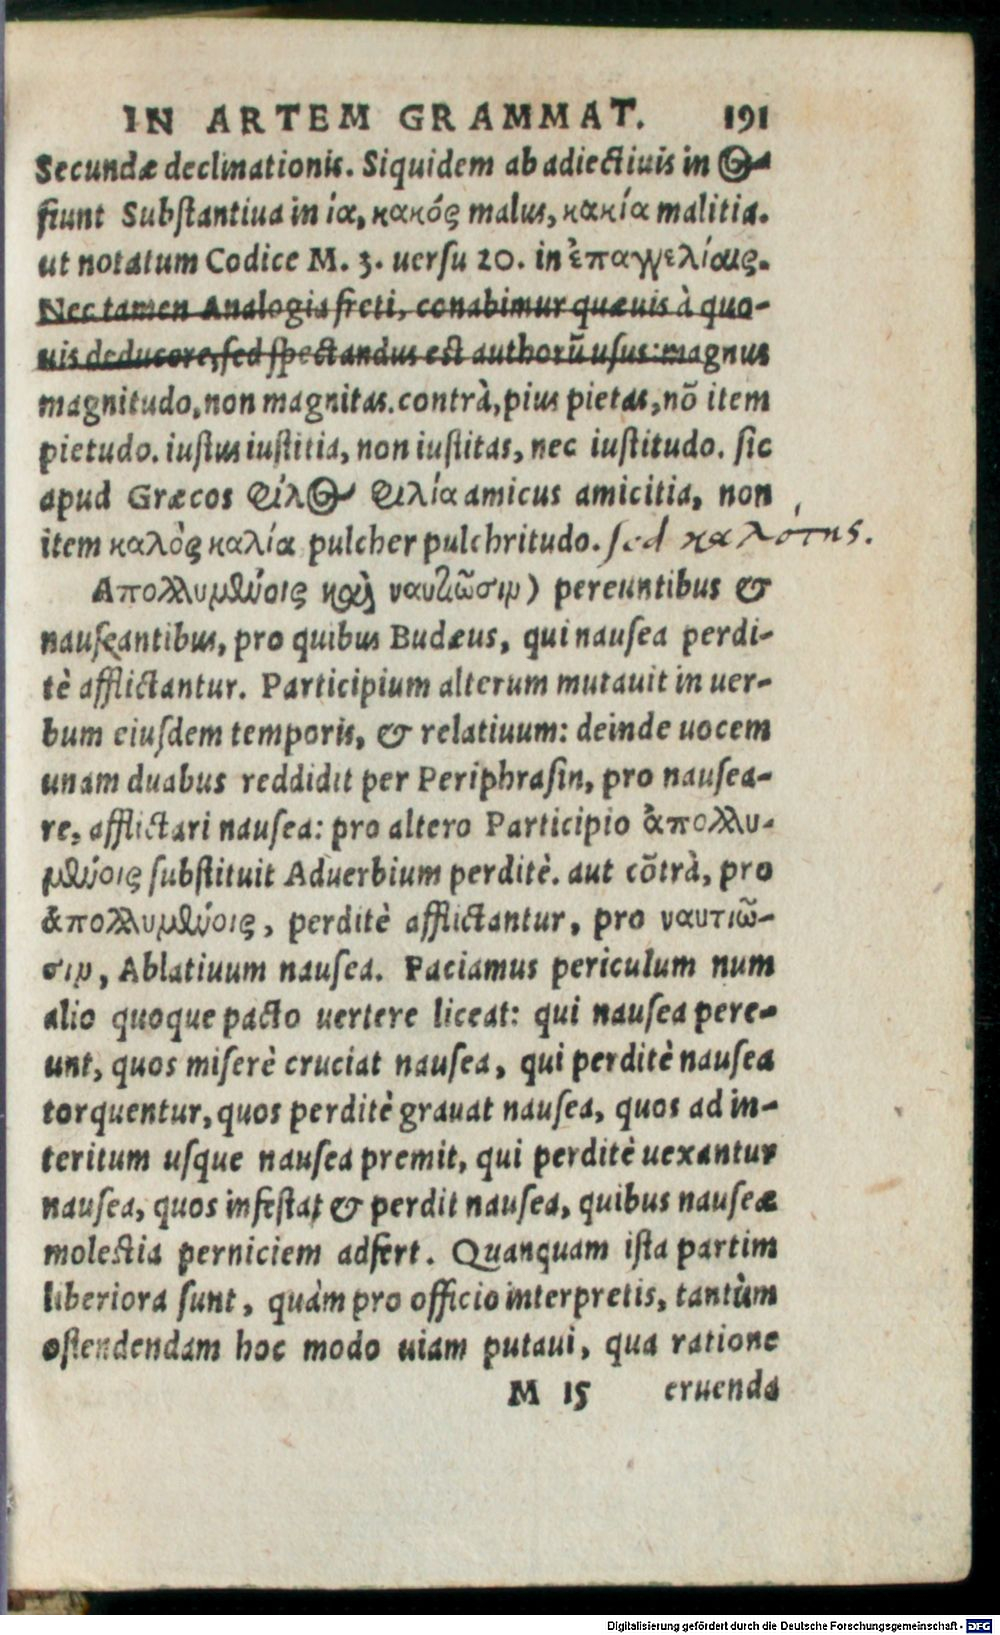 IN ARTEM GRAMMAT. 191
Secundæ declinationis. Siquidem ab adiectiuis in ⊙-
fiunt Substantiua in ία, κακός malus, κακία malitia.
ut notatum Codice M. 3. uersu 20. in ἐπαγγελίαις.
Nec tamen Analogia freti, conabimur quæuis à quo-
uis deducere, sed spectandus est authorũ usus: magnus
magnitudo, non magnitas. contrà, pius pietas, nõ item
pietudo. iustus iustitia, non iustitas, nec iustitudo. sic
apud Græcos φίλος φιλία amicus amicitia, non
item καλὸς καλία pulcher pulchritudo. sed καλότης.
Απολλυμένοις καὶ ναυτιῶσιν) pereuntibus &
nauseantibus, pro quibus Budæus, qui nausea perdi-
tè afflictantur. Participium alterum mutauit in uer-
bum eiusdem temporis, & relatiuum: deinde uocem
unam duabus reddidit per Periphrasin, pro nausea-
re, afflictari nausea: pro altero Participio ἀπολλυ-
μένοις substituit Aduerbium perditè. aut cõtrà, pro
ἀπολλυμένοις, perditè afflictantur, pro ναυτιῶ-
σιν, Ablatiuum nausea. Faciamus periculum num
alio quoque pacto uertere liceat: qui nausea pere-
unt, quos miserè cruciat nausea, qui perditè nausea
torquentur, quos perditè grauat nausea, quos ad in-
teritum usque nausea premit, qui perditè uexantur
nausea, quos infestat & perdit nausea, quibus nauseæ
molestia perniciem adfert. Quanquam ista partim
liberiora sunt, quàm pro officio interpretis, tantùm
ostendendam hoc modo uiam putaui, qua ratione
M 15 eruenda
Digitalisierung gefördert durch die Deutsche Forschungsgemeinschaft - DFG